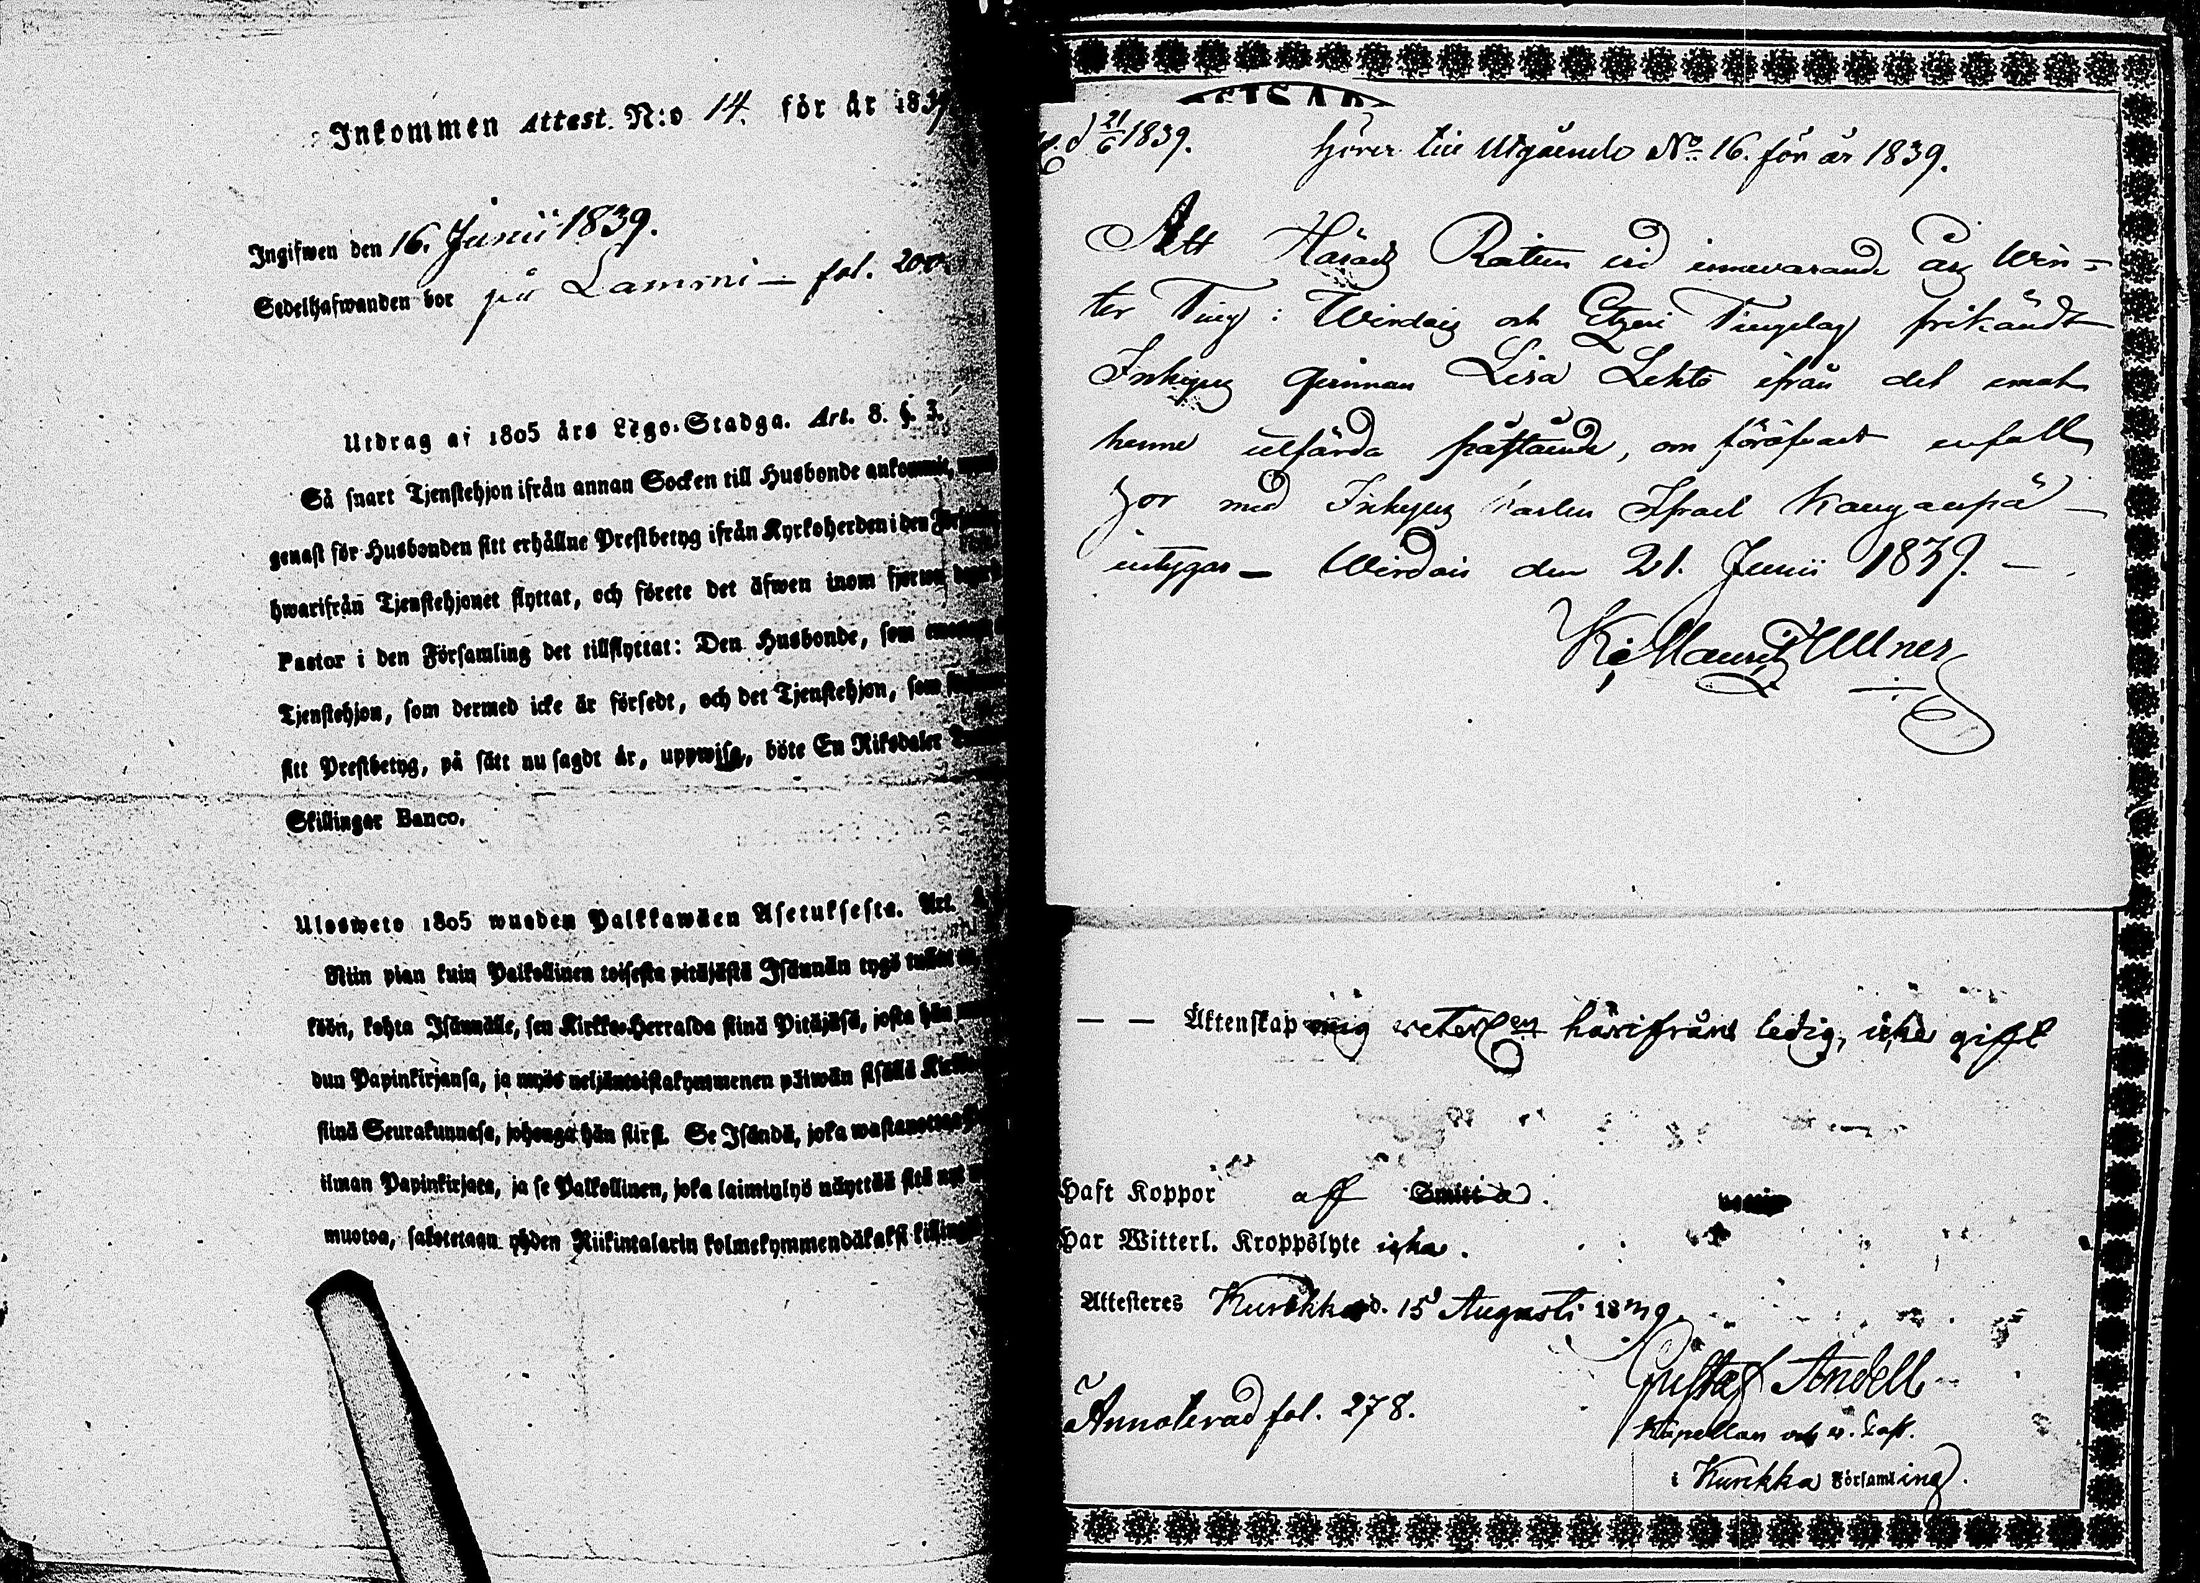 Inkommen Attest. N:o 14. för år 1839
Ingifwen den 16. Junii 1839.
Sedelhafwanden bor på Lammi — fol. 200
Utdrag af 1805 års Lego-Stadga. Art. 8. §. 3.
Så snart Tjenstehjon ifrån annan Socken till Husbonde ankommit,
genast för Husbonden sitt erhållne Prestbetyg ifrån Kyrkoherden i den
hwarifrån Tjenstehjonet flyttat, och förete det äfwen inom fjorton
Pastor i den Församling det tillflyttat: Den Husbonde, som emottager
Tjenstehjon, som dermed icke är försedt, och det Tjenstehjon, som
sitt Prestbetyg, på sätt nu sagdt är, uppwisa, böte En Riksdaler
Skillingar Banco.
Ulosweto 1805 wuoden Palkkawäen Asetuksesta. Art.
Niin pian kuin Palkollinen toisesta pitäjästä Isännän tygö
köön, kohta Isännälle, sen Kirkko-Herralda siinä Pitäjäsä, josta hän
dun Papinkirjansa, ja myös neljäntoistakymmenen päiwän sisällä
siinä Seurakunnasa, johonga hän siirst. Se Isändä, joka wastanottaa
ilman Papinkirjata, ja se Palkollinen, joka laiminlyö näyttää sitä nyt
muotoa, sakotetaan yhden Riikintalarin kolmekymmendäkaksi killingiä
d 21/6 1839. hörer till Utgående No 16. för år 1839.
Att Härads Rätten vid innevarande års Win-
ter Ting: Wirdois och Etzeri Tingslag frikändt
Inhyses qvinnan Lisa Lehto ifrån det emot
henne utförda påstående, om föröfvadt enfalt
hor med Inhyses karlen Israel Kangaspä —
intygas — Wirdois den 21. Junii 1839. —
Mauritz Ullner
— — Äktenskap mig veterl:en härifrån ledig, icke gift
Haft Koppor aff Smitta.
Har Witterl. Kroppslyte icke.
Attesteres Kurikka d. 15 Augusti 1839
Gustaf Andell
Annoterad fol. 278.
Kapellan och v. Past.
i Kurikka Församling.